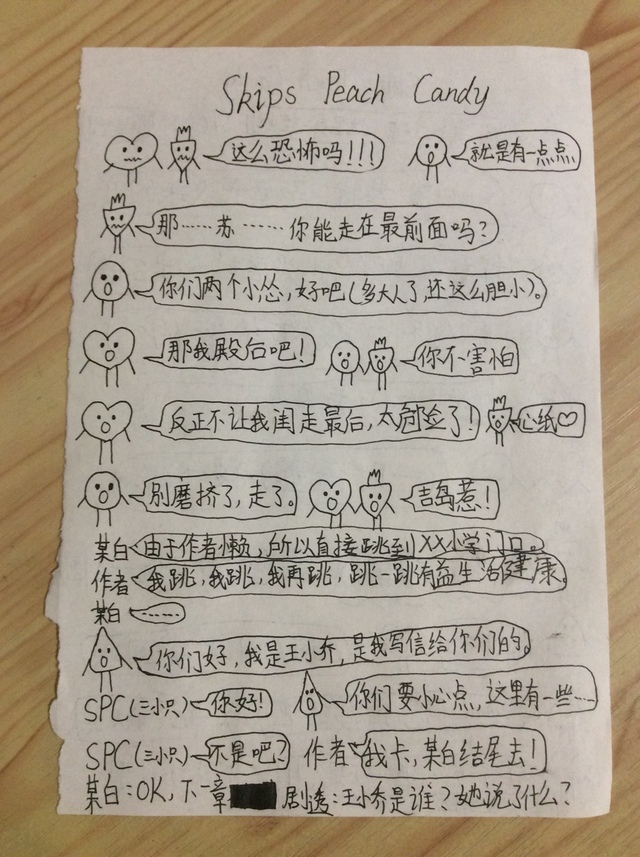 Skips Peach Candy
这么恐怖吗!!! 就是有一点点
那…… 苏 …… 你能走在最前面吗?
你们两个小怂,好吧(多大人了,还这么胆小)。
那我殿后吧! 你不害怕
反正不让我闺走最后,太危险了! 心纸♡
别磨挤了,走了。 吉岛惹!
某白 由于作者懒,所以直接跳到XX小学门口。
作者 我跳,我跳,我再跳,跳一跳有益生活健康。
某白 ……
你们好,我是王小乔,是我写信给你们的。
SPC(三小只) 你好! 你们要小心点,这里有一些……
SPC(三小只) 不是吧? 作者 我卡,某白结尾去!
某白:OK,下一章 剧透:王小乔是谁?她说了什么?